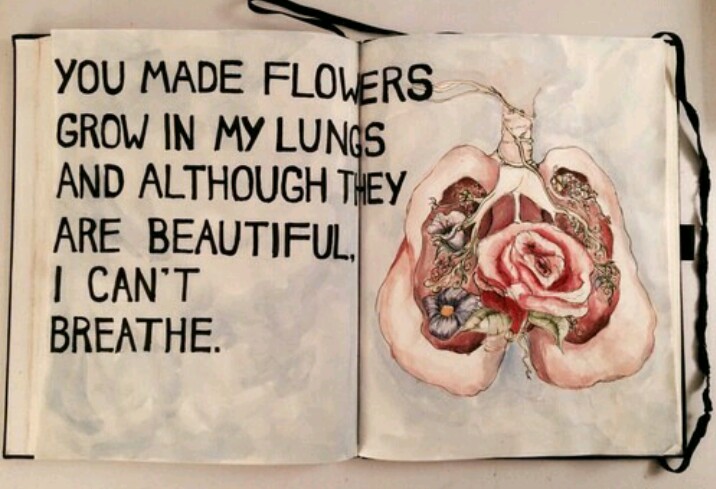 YOU MADE FLOWERS
GROW IN MY LUNGS
AND ALTHOUGH THEY
ARE BEAUTIFUL,
I CAN'T
BREATHE.